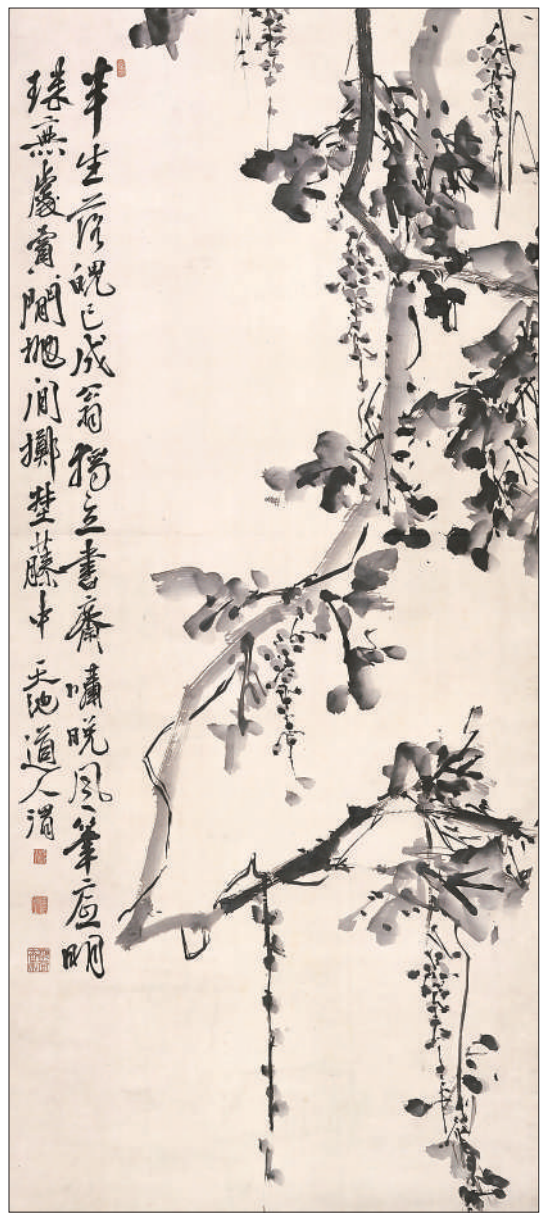 半生落魄已成翁獨立書齋嘯晚風筆底明
珠無處賣閒抛閒擲埜藤中 天池道人渭